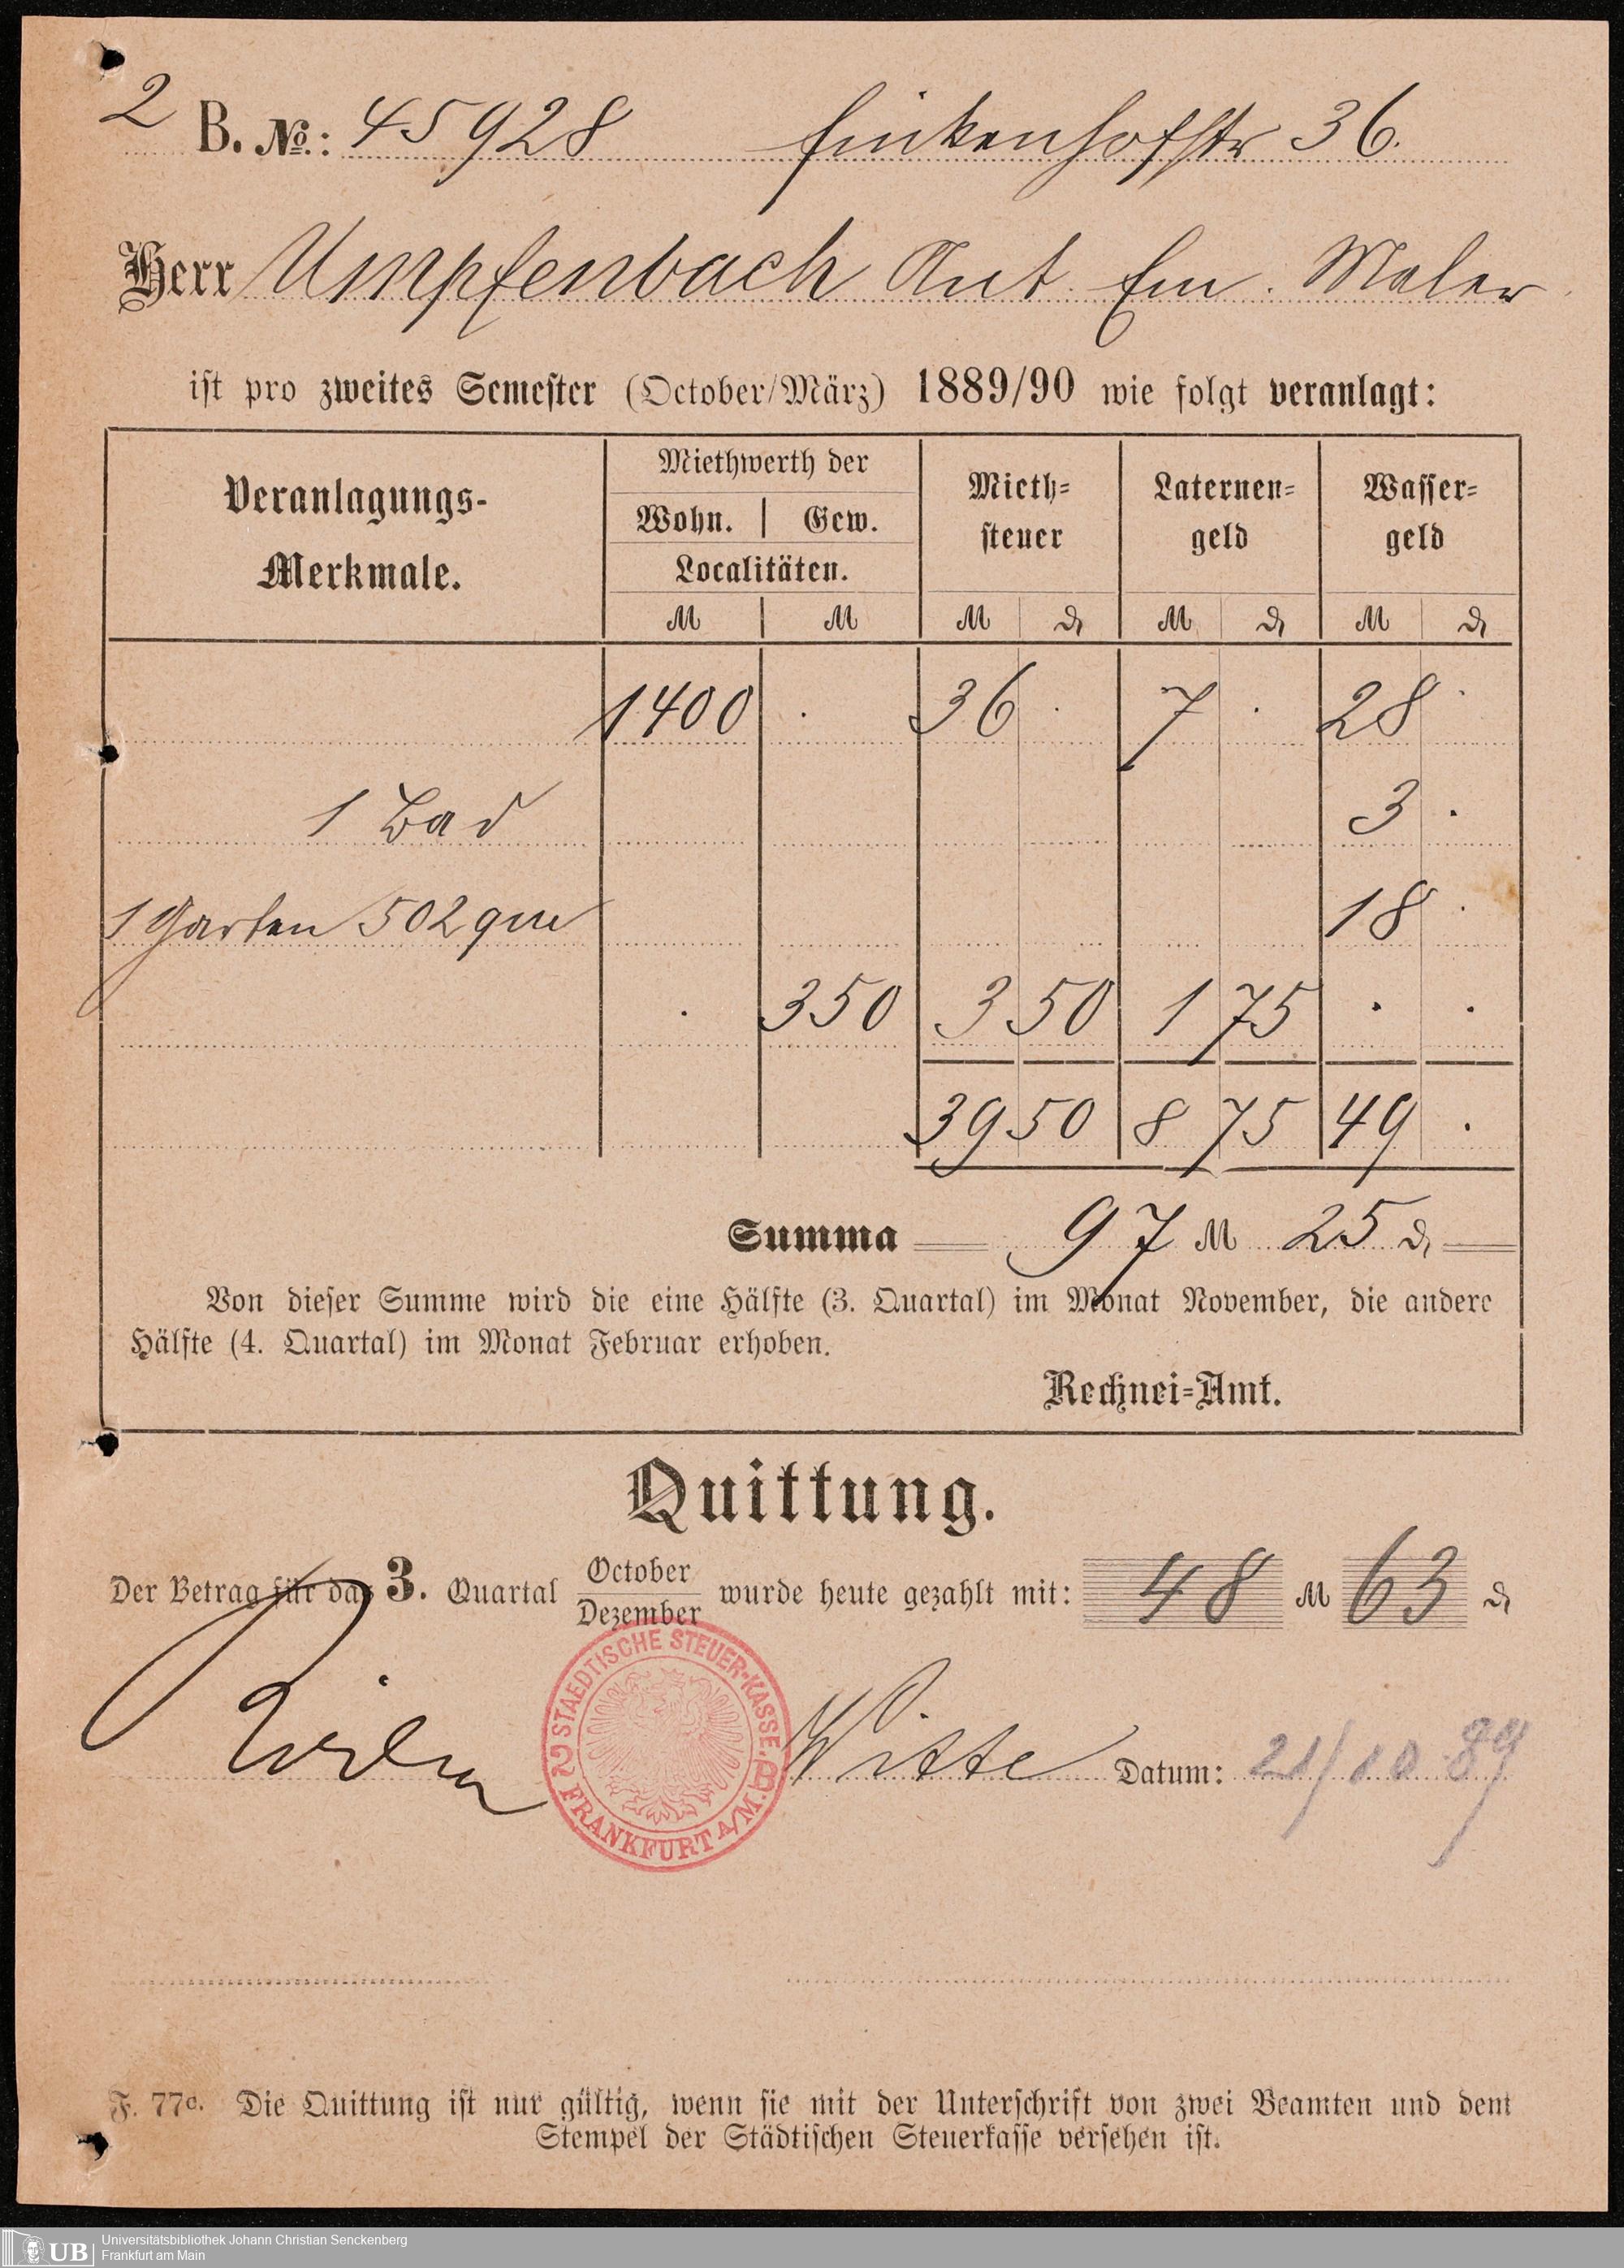 2 B. No.: 45928 Finkenhofstr 36.
Herr Umpfenbach Ant. Em. Maler
ist pro zweites Semester (October/März) 1889/90 wie folgt veranlagt:
Veranlagungs-Merkmale. Miethwerth der Wohn. | Gew. Localitäten. Mieth-steuer Laternen-geld Wasser-geld
M M M ₰ M ₰ M ₰
1400 . 36 . 7 . 28 .
1 Bad 3 .
1 Garten 502 qm 18 .
. 350 3 50 1 75 . .
39 50 8 75 49 .
Summa 97 M 25 ₰
Von dieser Summe wird die eine Hälfte (3. Quartal) im Monat November, die andere
Hälfte (4. Quartal) im Monat Februar erhoben.
Rechnei-Amt.
Quittung.
Der Betrag für das 3. Quartal October/Dezember wurde heute gezahlt mit: 48 M 63 ₰
2 STAEDTISCHE STEUER-KASSE. B FRANKFURT A/M.
Witte Datum: 21/10 89
F. 77c. Die Quittung ist nur gültig, wenn sie mit der Unterschrift von zwei Beamten und dem
Stempel der Städtischen Steuerkasse versehen ist.
UB Universitätsbibliothek Johann Christian Senckenberg
Frankfurt am Main